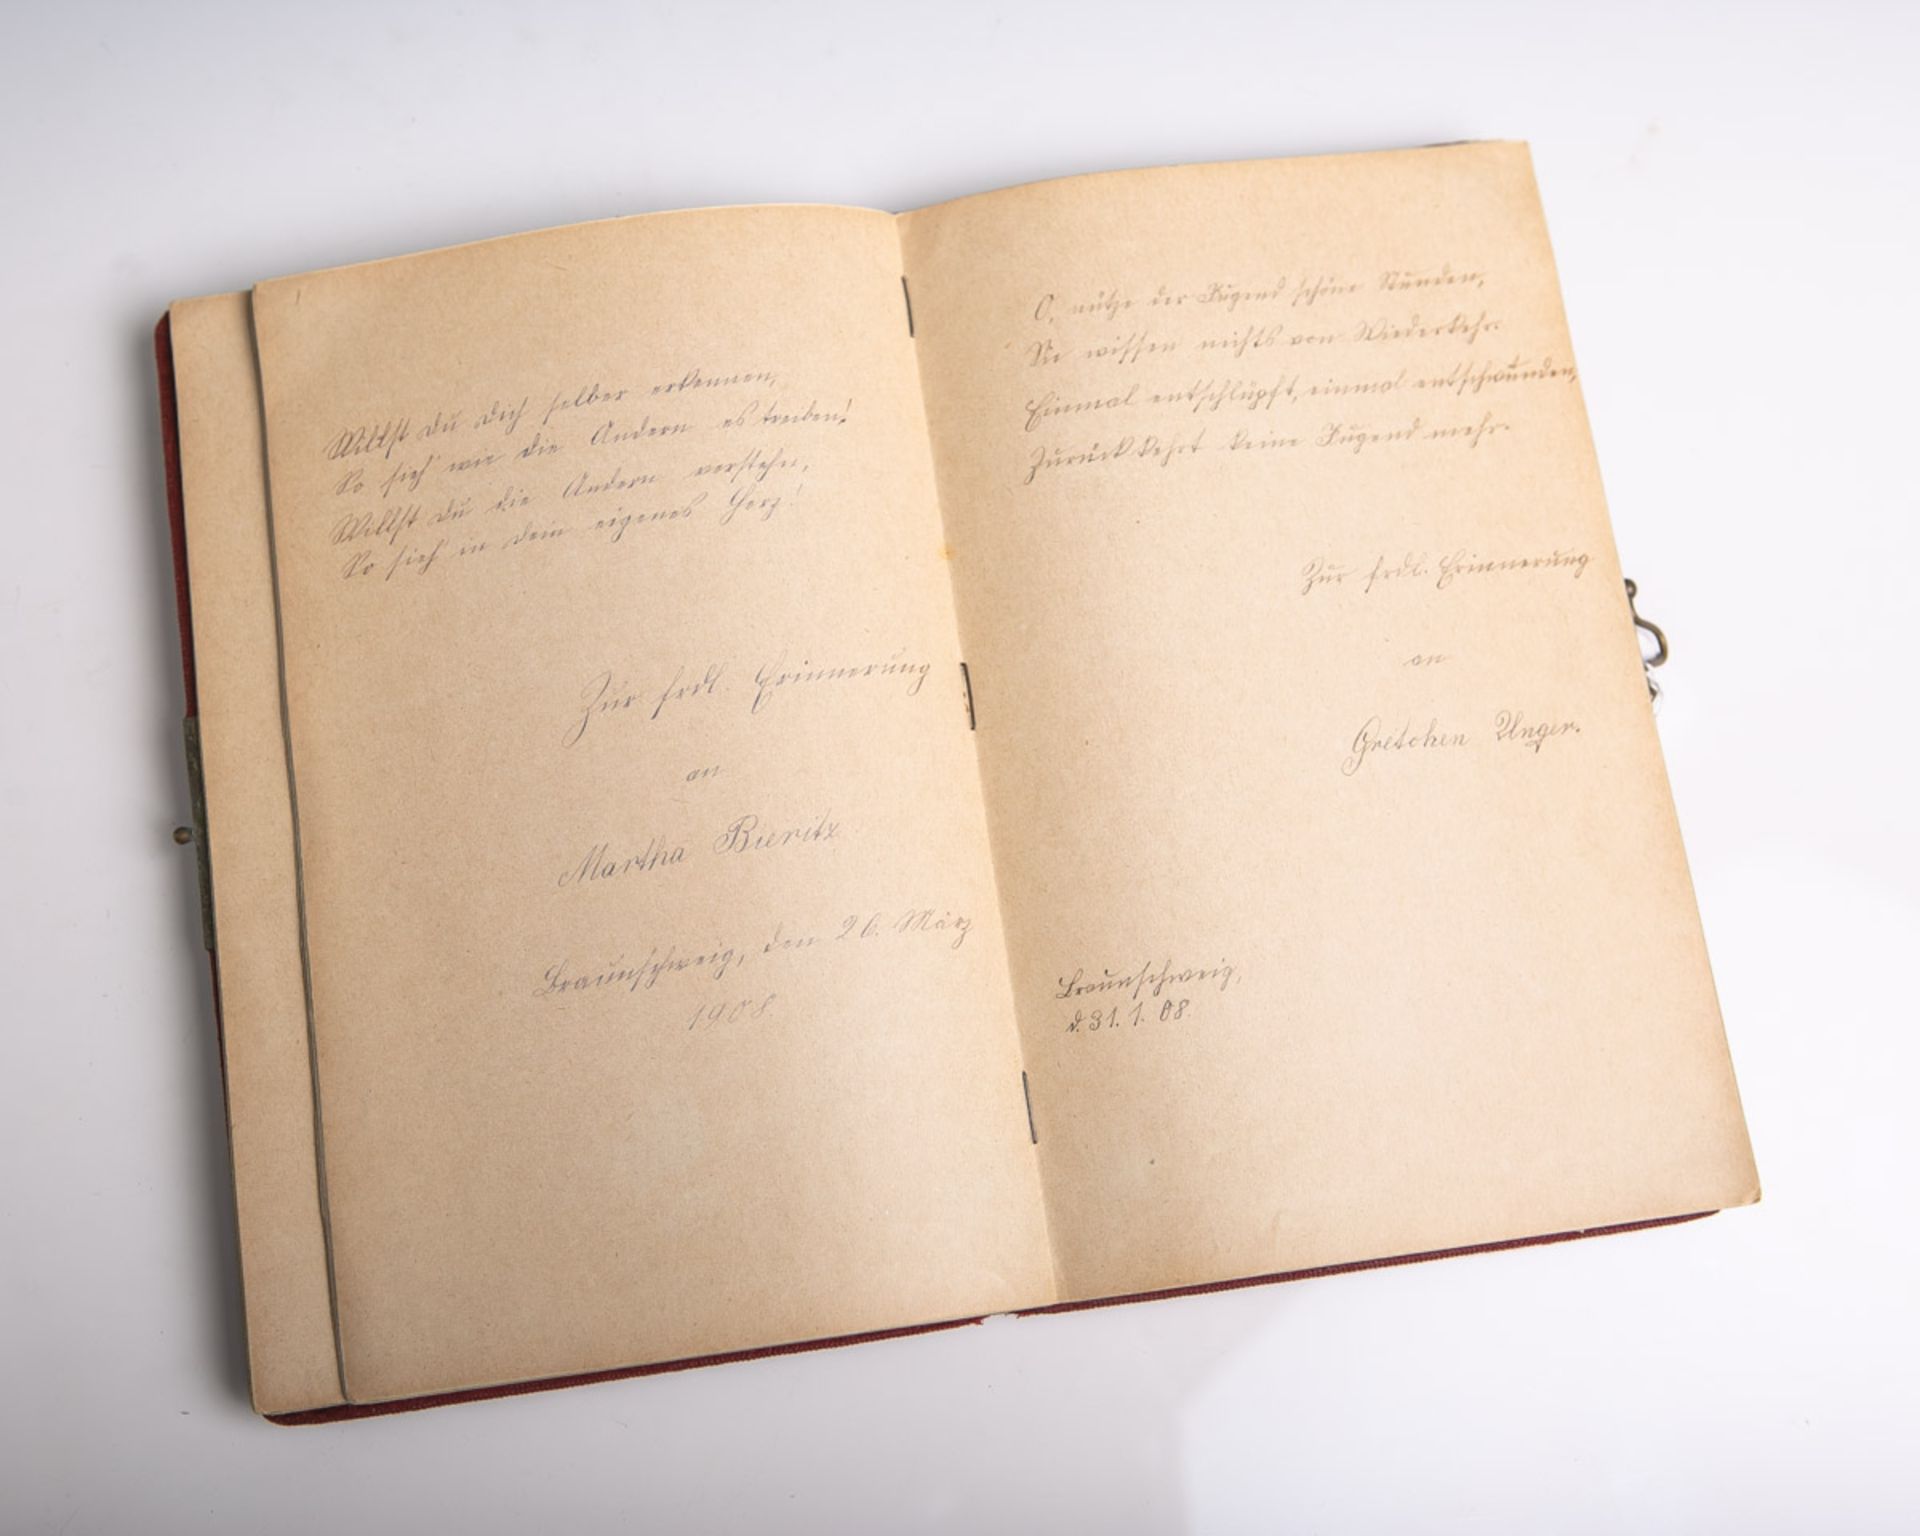 Willst du dich selber erkennen,
So sieh' wie die Andern es treiben!
Willst du die Andern verstehn,
So sieh' in dein eigenes Herz!
Zur frdl. Erinnerung
an
Martha Bieritz
Braunschweig, den 26. März
1908.
O, nütze der Jugend schöne Stunden,
Sie wissen nichts von Wiederkehr.
Einmal entschlüpft, einmal entschwunden,
Zurück kehrt keine Jugend mehr.
Zur frdl. Erinnerung
an
Gretchen Unger.
Braunschweig,
d. 31. 1. 08.